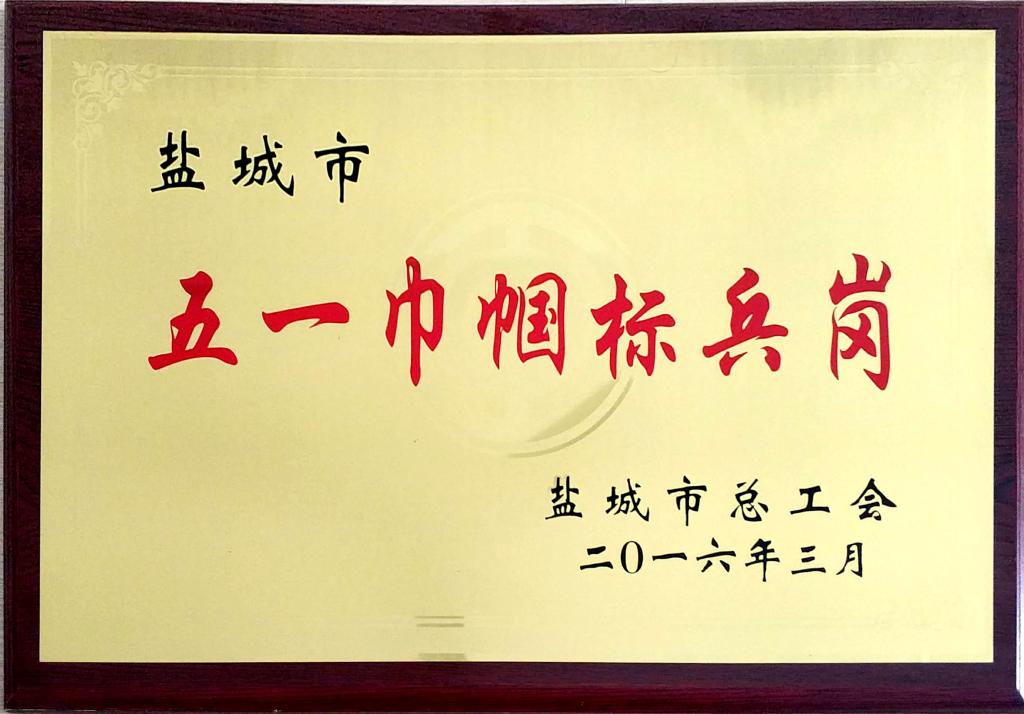 盐城市
五一巾帼标兵岗
盐城市总工会
二0一六年三月